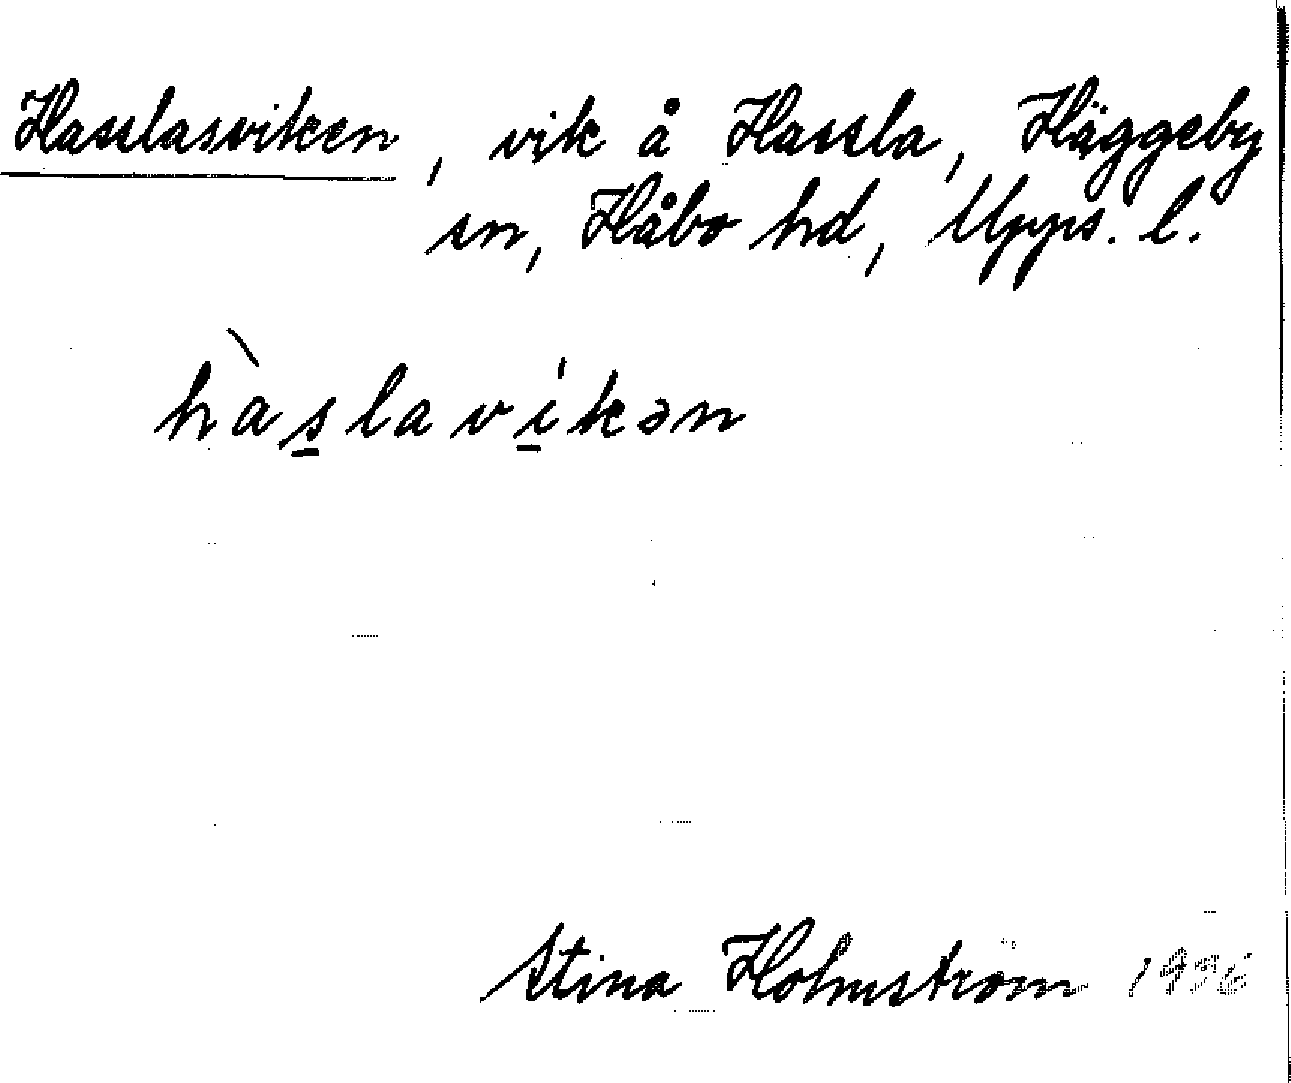 Hasslasviken, vik å Hassla, Häggeby
sn, Håbo hd, Upps. l.
hàslavíkən
Stina Holmström 1936